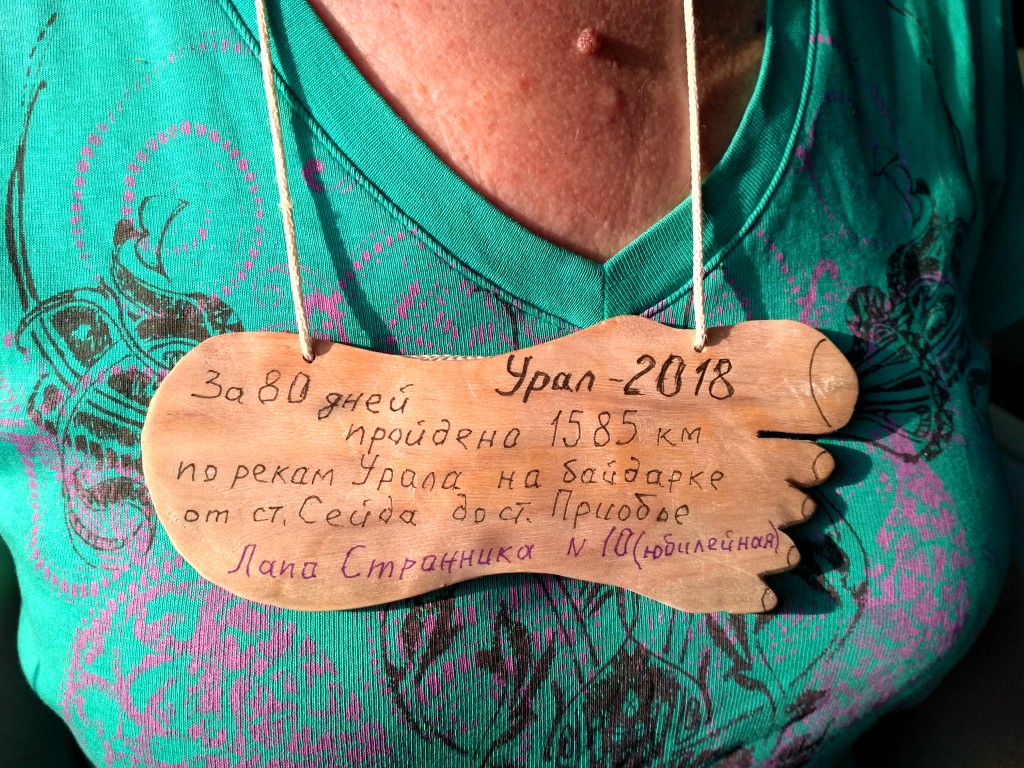 Урал-2018
За 80 дней
пройдено 1585 км
по рекам Урала на байдарке
от ст. Сейда до ст. Приобье
Лапа Странника N 10 (юбилейная)